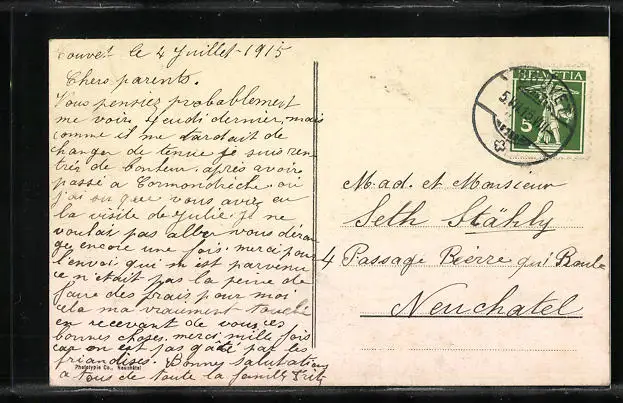 Couvet le 4 Juillet - 1915
Chers parents.
Vous pensiez probablement
me voir, Jeudi dernier, mais
comme il me tardait de
changer de tenue je suis ren-
tré de bonheur, après avoir
passé à Cormondrèche où
j'ai su que vous aviez eu
la visite de Julie. Je ne
voulais pas aller vous déran
ger encore une fois. merci pour
l'envoi qui m'est parvenu
ce n'était pas la peine de
faire des frais pour moi
cela ma vraiment touché
en recevant de vous ces
bonnes choses, merci mille fois
car on est pas gâté par les
friandises. Bonnes salutations
à tous de toute la famille Fritz
Phototypie Co., Neuchâtel
HELVETIA
5
Mad. et Monsieur
Seth Stähly
4 Passage Pierre qui Roule
Neuchatel